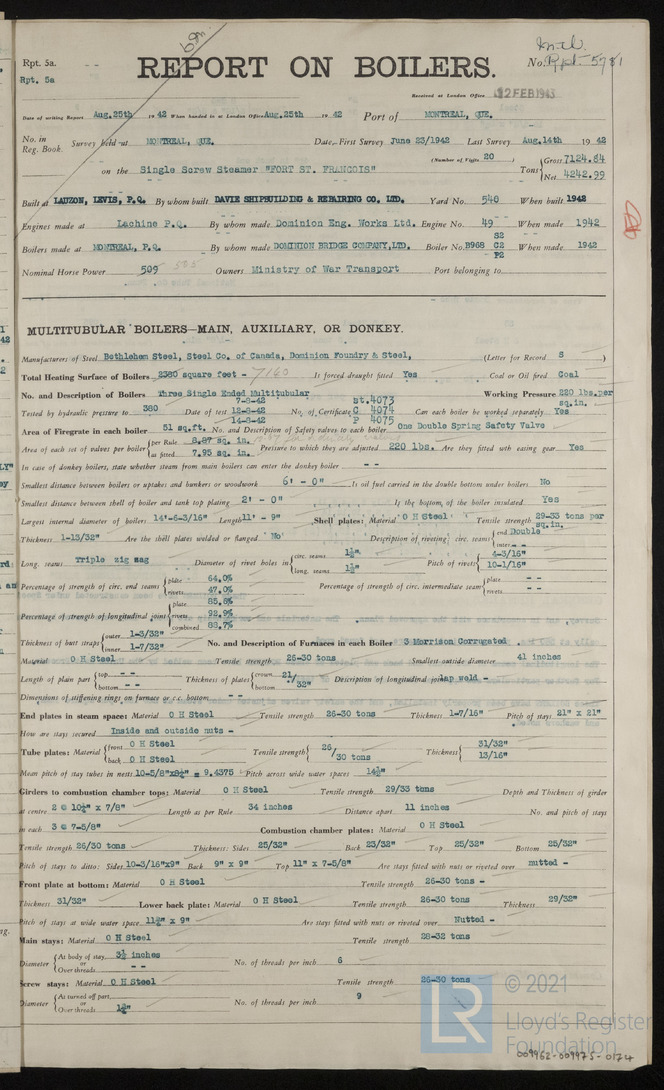 Rpt. 5a.
Rpt. 5a
REPORT ON BOILERS.
No. Rpt. 5781
Received at London Office 12 FEB 1943
Date of writing Report Aug.25th 19 42 When handed in at London Office Aug.25th 19 42 Port of MONTREAL, QUE.
No. in Reg. Book. Survey held at MONTREAL, QUE. Date, First Survey June 23/1942 Last Survey Aug.14th 19 42
(Number of Visits 20)
on the Single Screw Steamer "FORT ST. FRANCOIS" Tons Gross 7124.64 Net 4242.99
Built at LAUZON, LEVIS, P.Q. By whom built DAVIE SHIPBUILDING & REPAIRING CO. LTD. Yard No. 540 When built 1942
Engines made at Lachine P.Q. By whom made Dominion Eng. Works Ltd. Engine No. 49 When made 1942
Boilers made at MONTREAL, P.Q. By whom made DOMINION BRIDGE COMPANY, LTD. Boiler No. B968 S2 C2 P2 When made 1942
Nominal Horse Power 509 505 Owners Ministry of War Transport Port belonging to
MULTITUBULAR BOILERS—MAIN, AUXILIARY, OR DONKEY.
Manufacturers of Steel Bethlehem Steel, Steel Co. of Canada, Dominion Foundry & Steel, (Letter for Record S )
Total Heating Surface of Boilers 2380 square feet - 7140 Is forced draught fitted Yes Coal or Oil fired Coal
No. and Description of Boilers Three Single Ended Multitubular Working Pressure 220 lbs. per sq.in.
Tested by hydraulic pressure to 380 Date of test 7-8-42 12-8-42 14-8-42 No. of Certificate St.4073 C 4074 P 4075 Can each boiler be worked separately Yes
Area of Firegrate in each boiler 51 sq.ft. No. and Description of Safety valves to each boiler One Double Spring Safety Valve
Area of each set of valves per boiler per Rule 8.87 sq. in. as fitted 7.95 sq. in. Pressure to which they are adjusted 220 lbs. Are they fitted with easing gear Yes
In case of donkey boilers, state whether steam from main boilers can enter the donkey boiler - -
Smallest distance between boilers or uptakes and bunkers or woodwork 6' - 0" Is oil fuel carried in the double bottom under boilers No
Smallest distance between shell of boiler and tank top plating 2' - 0" Is the bottom of the boiler insulated Yes
Largest internal diameter of boilers 14'-6-3/16" Length 11' - 9" Shell plates: Material O H Steel Tensile strength 29-33 tons per sq.in.
Thickness 1-13/32" Are the shell plates welded or flanged No Description of riveting: circ. seams end Double inter. - -
Long. seams Triple zig zag Diameter of rivet holes in circ. seams 1½" long. seams 1½" Pitch of rivets 4-3/16" 10-1/16"
Percentage of strength of circ. end seams plate 64.0% rivets 47.0% Percentage of strength of circ. intermediate seam plate - - rivets - -
Percentage of strength of longitudinal joint plate 85.8% rivets 92.9% combined 88.7%
Thickness of butt straps outer 1-3/32" inner 1-7/32" No. and Description of Furnaces in each Boiler 3 Morrison Corrugated
Material O H Steel Tensile strength 26-30 tons Smallest outside diameter 41 inches
Length of plain part top - - bottom - - Thickness of plates crown bottom 21/32" Description of longitudinal joint lap weld -
Dimensions of stiffening rings on furnace or c.c. bottom - -
End plates in steam space: Material O H Steel Tensile strength 26-30 tons Thickness 1-7/16" Pitch of stays 21" x 21"
How are stays secured Inside and outside nuts -
Tube plates: Material front O H Steel back O H Steel Tensile strength 26/30 tons Thickness 31/32" 13/16"
Mean pitch of stay tubes in nests 10-5/8"x8¼" = 9.4375 Pitch across wide water spaces 14½"
Girders to combustion chamber tops: Material O H Steel Tensile strength 29/33 tons Depth and Thickness of girder
at centre 2 @ 10¼" x 7/8" Length as per Rule 34 inches Distance apart 11 inches No. and pitch of stays
in each 3 @ 7-5/8" Combustion chamber plates: Material O H Steel
Tensile strength 26/30 tons Thickness: Sides 25/32" Back 23/32" Top 25/32" Bottom 25/32"
Pitch of stays to ditto: Sides 10-3/16"x9" Back 9" x 9" Top 11" x 7-5/8" Are stays fitted with nuts or riveted over nutted -
Front plate at bottom: Material O H Steel Tensile strength 26-30 tons -
Thickness 31/32" Lower back plate: Material O H Steel Tensile strength 26-30 tons Thickness 29/32"
Pitch of stays at wide water space 11½" x 9" Are stays fitted with nuts or riveted over Nutted -
Main stays: Material O H Steel Tensile strength 28-32 tons
Diameter At body of stay, or Over threads 3½ inches - - No. of threads per inch 6
Screw stays: Material O H Steel Tensile strength 26-30 tons
Diameter At turned off part, or Over threads 1¾" No. of threads per inch 9
LR © 2021
Lloyd's Register
Foundation
009962-009975-0174